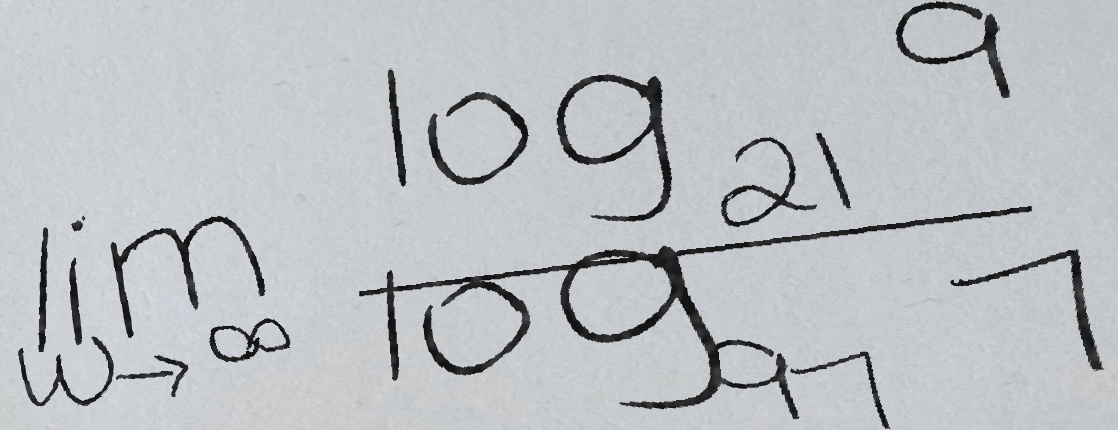 \lim_{w \to \infty} \frac{\log_{21} 9}{\log_{97} 7}